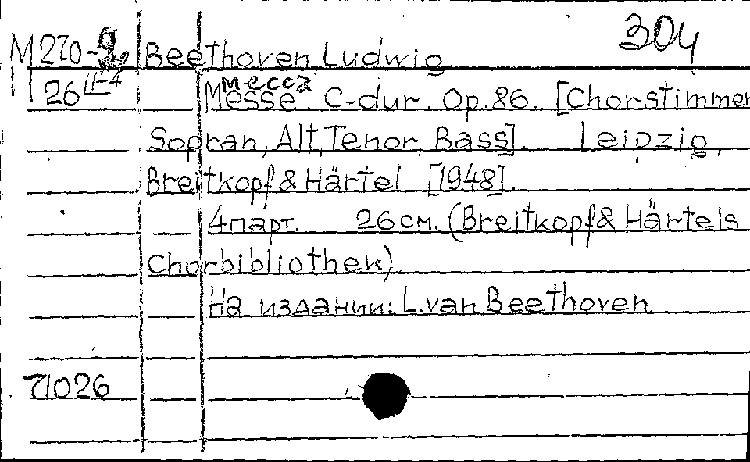 304
М270- Beethoven Ludwig
26 месса
Messe C-dur. Op. 86. [Chorstimmen
Sopran, Alt, Tenor, Bass]. Leipzig,
Breitkopf & Härtel [1948].
4 парт. 26 см. (Breitkopf & Härtels
Chorbibliothek).
На издании: L. van Beethoven
71026